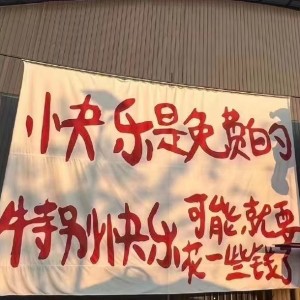 快乐是免费的
特别快乐可能就要
花一些钱了